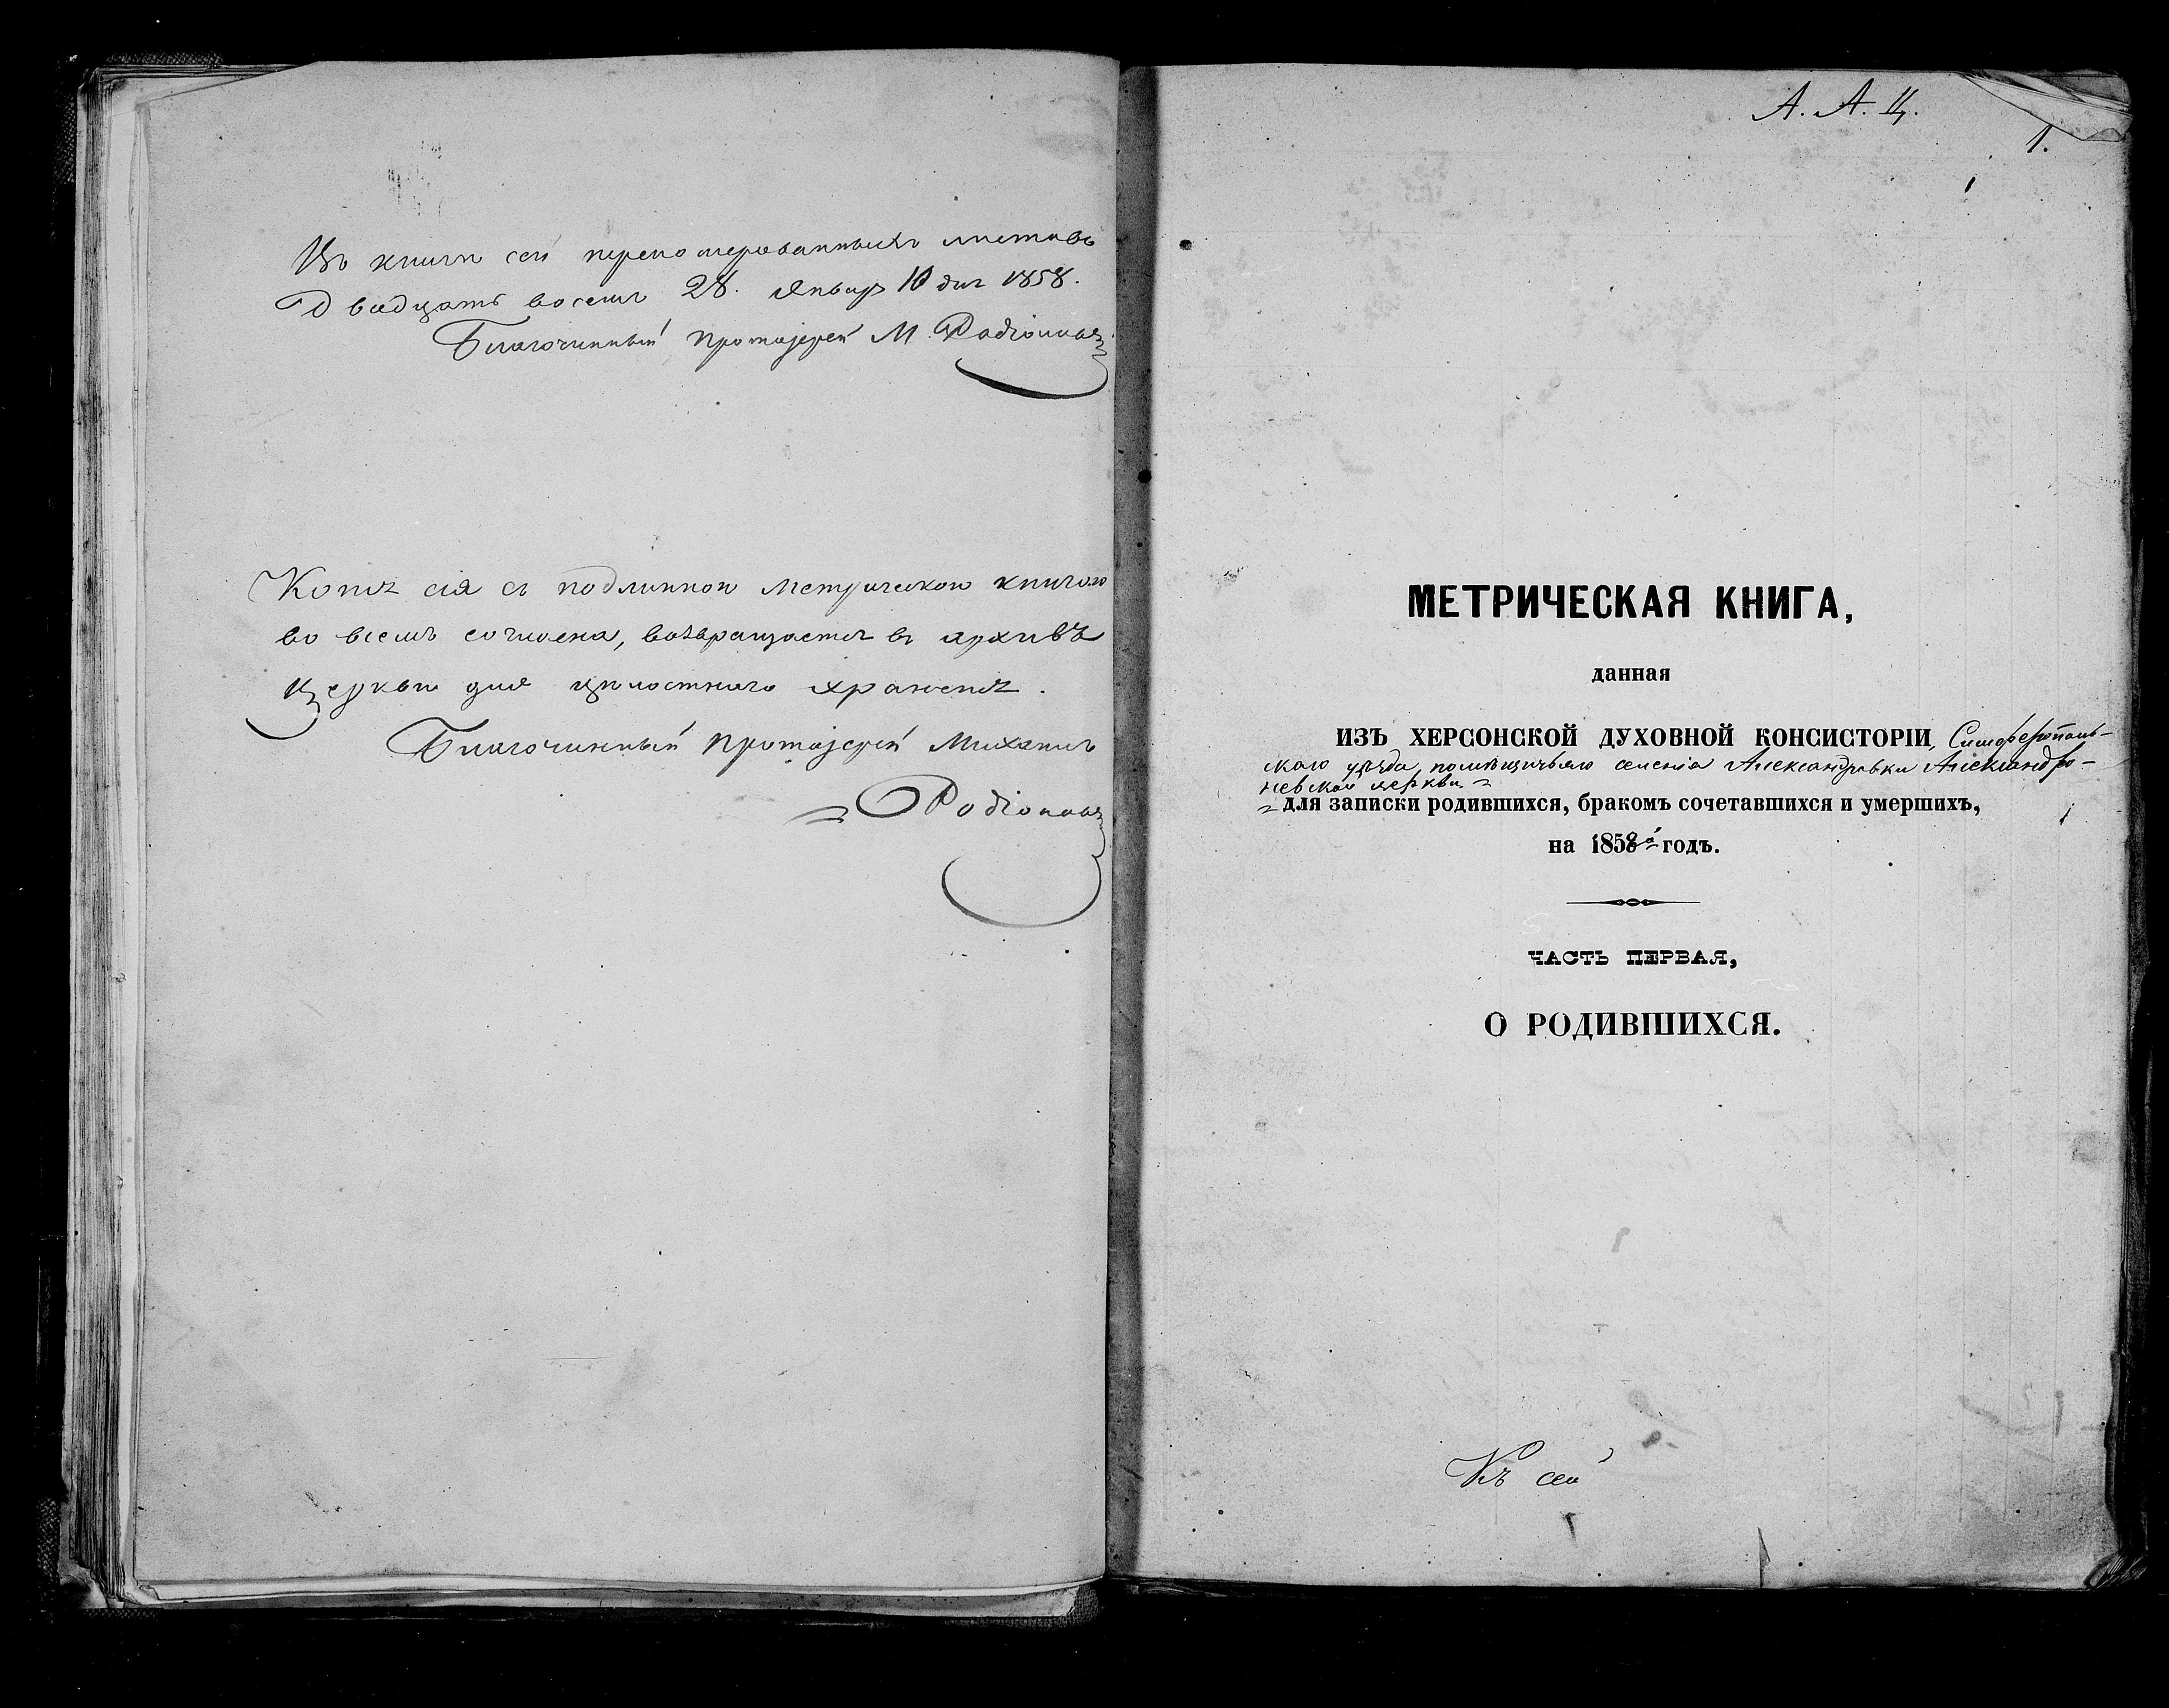 Въ книги сей переномерованныхъ листовъ
Двадцать восемь 28. Январ 10 дня 1858.
Благочинный Протоіерей М. Родіоновъ
Копія сія съ подлинною Метрическою книгою
во всемъ согласна, возвращается въ архивъ
Церкви для цѣлостнаго храненія.
Благочинный Протоіерей Михаилъ
Родіоновъ
А. А. Ц.
1.
МЕТРИЧЕСКАЯ КНИГА,
данная
ИЗЪ ХЕРСОНСКОЙ ДУХОВНОЙ КОНСИСТОРІИ, Симферополь-
скаго уѣзда, помѣщичьяго селенія Александровки Александро-
невской церкви =
= для записки родившихся, бракомъ сочетавшихся и умершихъ,
на 1858й годъ.
ЧАСТЬ ПЕРВАЯ,
О РОДИВШИХСЯ.
Къ сей